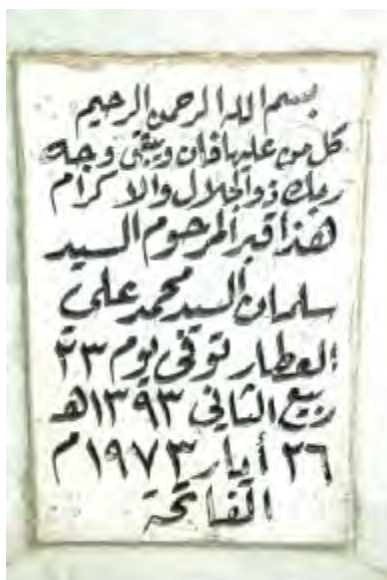 بسم الله الرحمن الرحيم
كل من عليها فان ويبقى وجه
ربك ذو الجلال والاكرام
هذا قبر المرحوم السيد
سلمان السيد محمد علي
العطار توفي يوم ٢٣
ربيع الثاني ١٣٩٣هـ
٢٦ أيار ١٩٧٣م
الفاتحة